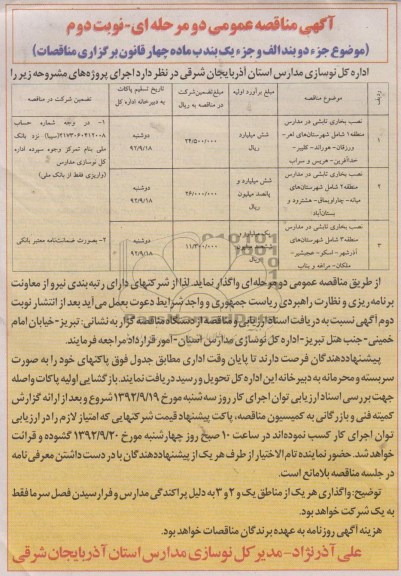 آگهی مناقصه عمومی دو مرحله ای-نوبت دوم
(موضوع جزء دو بند الف و جزء یک بند ب ماده چهار قانون برگزاری مناقصات)
اداره کل نوسازی مدارس استان آذربایجان شرقی در نظر دارد اجرای پروژه‌های مشروحه زیر را
ردیف
موضوع مناقصه
مبلغ برآورد اولیه
ریال
مبلغ تضمین شرکت
در مناقصه به ریال
تاریخ تسلیم پاکات
به دبیرخانه اداره کل
تضمین شرکت در مناقصه
۱
نصب بخاری تابشی در مدارس
منطقه۱ شامل شهرستان‌های اهر-
ورزقان- هوراند- کلیبر-
خداآفرین- هریس و سراب
شش میلیارد
ریال
۲۴/۵۰۰/۰۰۰
دوشنبه
۹۲/۹/۱۸
۱- در وجه شماره حساب
۲۱۷۳۰۶۰۴۱۲۰۰۸(سیبا) نزد بانک
ملی بنام تمرکز وجوه سپرده اداره
کل نوسازی مدارس
(واریزی فقط از بانک ملی)
۲
نصب بخاری تابشی در مدارس
منطقه۲ شامل شهرستان‌های
میانه- چاراویماق- هشترود و
بستان‌آباد
شش میلیارد و
پانصد میلیون
ریال
۲۶/۰۰۰/۰۰۰
دوشنبه
۹۲/۹/۱۸
۳
نصب بخاری تابشی در مدارس
منطقه۳ شامل شهرستان‌های
آذرشهر- اسکو- عجبشیر-
ملکان- مراغه و بناب
۱۱/۳۰۰/۰۰۰
دوشنبه
۹۲/۹/۱۸
۲- بصورت ضمانت‌نامه معتبر بانکی
از طریق مناقصه عمومی دومرحله ای واگذار نماید. لذا از شرکتهای دارای رتبه بندی نیرو از معاونت
برنامه ریزی و نظارت راهبردی ریاست جمهوری و واجد شرایط دعوت بعمل می آید بعد از انتشار نوبت
دوم آگهی نسبت به دریافت اسناد ارزیابی و مناقصه از دستگاه مناقصه گزار به نشانی: تبریز- خیابان امام
خمینی- جنب هتل تبریز- اداره کل نوسازی مدارس استان- امور قرارداد مراجعه فرمایند.
پیشنهاددهندگان فرصت دارند تا پایان وقت اداری مطابق جدول فوق پاکتهای خود را به صورت
سربسته و محرمانه به دبیرخانه این اداره کل تحویل و رسید دریافت نمایند. بازگشایی اولیه پاکات واصله
جهت بررسی اسناد ارزیابی توان اجرای کار روز سه شنبه مورخ ۱۳۹۲/۹/۱۹ شروع و بعد از ارائه گزارش
کمیته فنی و بازرگانی به کمیسیون مناقصه، پاکت پیشنهاد قیمت شرکتهایی که امتیاز لازم را در ارزیابی
توان اجرای کار کسب نموده‌اند در ساعت ۱۰ صبح روز چهارشنبه مورخ ۱۳۹۲/۹/۲۰ گشوده و قرائت
خواهد شد. حضور نماینده تام الاختیار از طرف هر یک از پیشنهاددهندگان با در دست داشتن معرفی نامه
در جلسه مناقصه بلامانع است.
توضیح: واگذاری هر یک از مناطق یک و ۲ و ۳ به دلیل پراکندگی مدارس و فرارسیدن فصل سرما فقط
به یک شرکت خواهد بود.
هزینه آگهی روزنامه به عهده برندگان مناقصات خواهد بود.
علی آذرنژاد- مدیرکل نوسازی مدارس استان آذربایجان شرقی